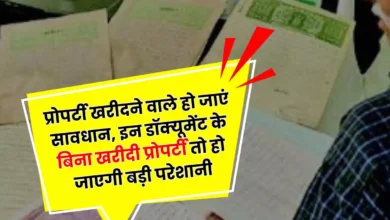 प्रोपर्टी खरीदने वाले हो जाएं
सावधान, इन डॉक्यूमेंट के
बिना खरीदी प्रोपर्टी तो हो
जाएगी बड़ी परेशानी